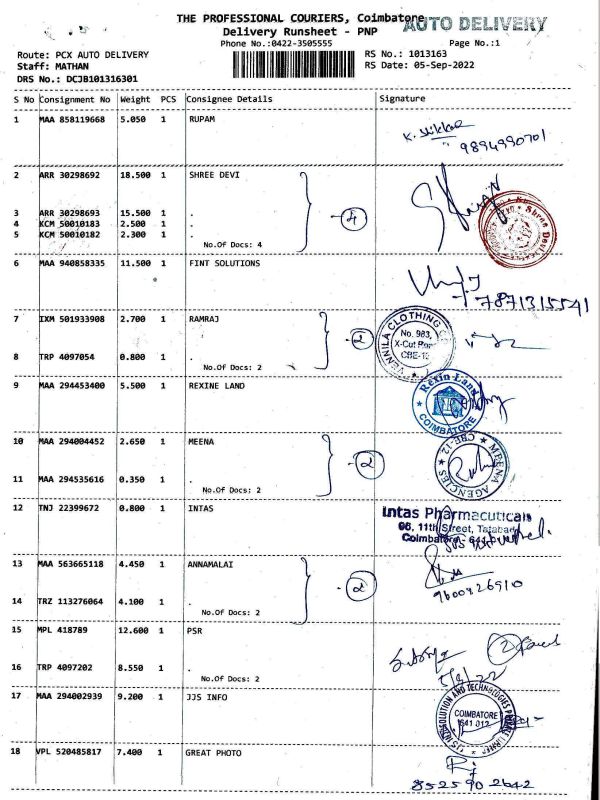 THE PROFESSIONAL COURIERS, Coimbatore
AUTO DELIVERY
Delivery Runsheet - PNP
Phone No.:0422-3505555
Page No.:1
Route: PCX AUTO DELIVERY
RS No.: 1013163
Staff: MATHAN
RS Date: 05-Sep-2022
DRS No.: DCJB101316301
S No Consignment No Weight PCS Consignee Details Signature
1 MAA 858119668 5.050 1 RUPAM
9894990701
2 ARR 30298692 18.500 1 SHREE DEVI
3 ARR 30298693 15.500 1 .
4 KCM 50010183 2.500 1 .
5 KCM 50010182 2.300 1 .
4
No.Of Docs: 4
6 MAA 940858335 11.500 1 FINT SOLUTIONS
7871315541
7 IXM 501933908 2.700 1 RAMRAJ
VENNILA CLOTHING
No. 983,
X-Cut Road
CBE-12
2
8 TRP 4097054 0.800 1 .
No.Of Docs: 2
9 MAA 294453400 5.500 1 REXINE LAND
Rexin Land
COIMBATORE
10 MAA 294004452 2.650 1 MEENA
2
MEENA AGENCIES
CBE-12
11 MAA 294535616 0.350 1 .
No.Of Docs: 2
12 TNJ 22399672 0.800 1 INTAS
Intas Pharmacuticals
11th Street, Tatabad
Coimbatore
13 MAA 563665118 4.450 1 ANNAMALAI
2
9600926910
14 TRZ 113276064 4.100 1 .
No.Of Docs: 2
15 MPL 418789 12.600 1 PSR
2
16 TRP 4097202 8.550 1 .
No.Of Docs: 2
17 MAA 294002939 9.200 1 JJS INFO
COIMBATORE
641 012
18 VPL 520485817 7.400 1 GREAT PHOTO
852590 2642